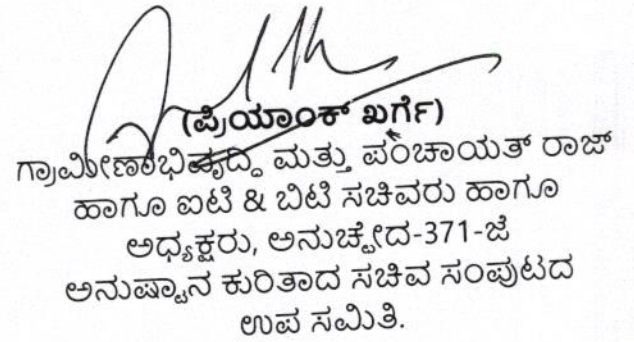 (ಪ್ರಿಯಾಂಕ್ ಖರ್ಗೆ)
ಗ್ರಾಮೀಣಾಭಿವೃದ್ಧಿ ಮತ್ತು ಪಂಚಾಯತ್ ರಾಜ್
ಹಾಗೂ ಐಟಿ & ಬಿಟಿ ಸಚಿವರು ಹಾಗೂ
ಅಧ್ಯಕ್ಷರು, ಅನುಚ್ಛೇದ-371-ಜೆ
ಅನುಷ್ಠಾನ ಕುರಿತಾದ ಸಚಿವ ಸಂಪುಟದ
ಉಪ ಸಮಿತಿ.